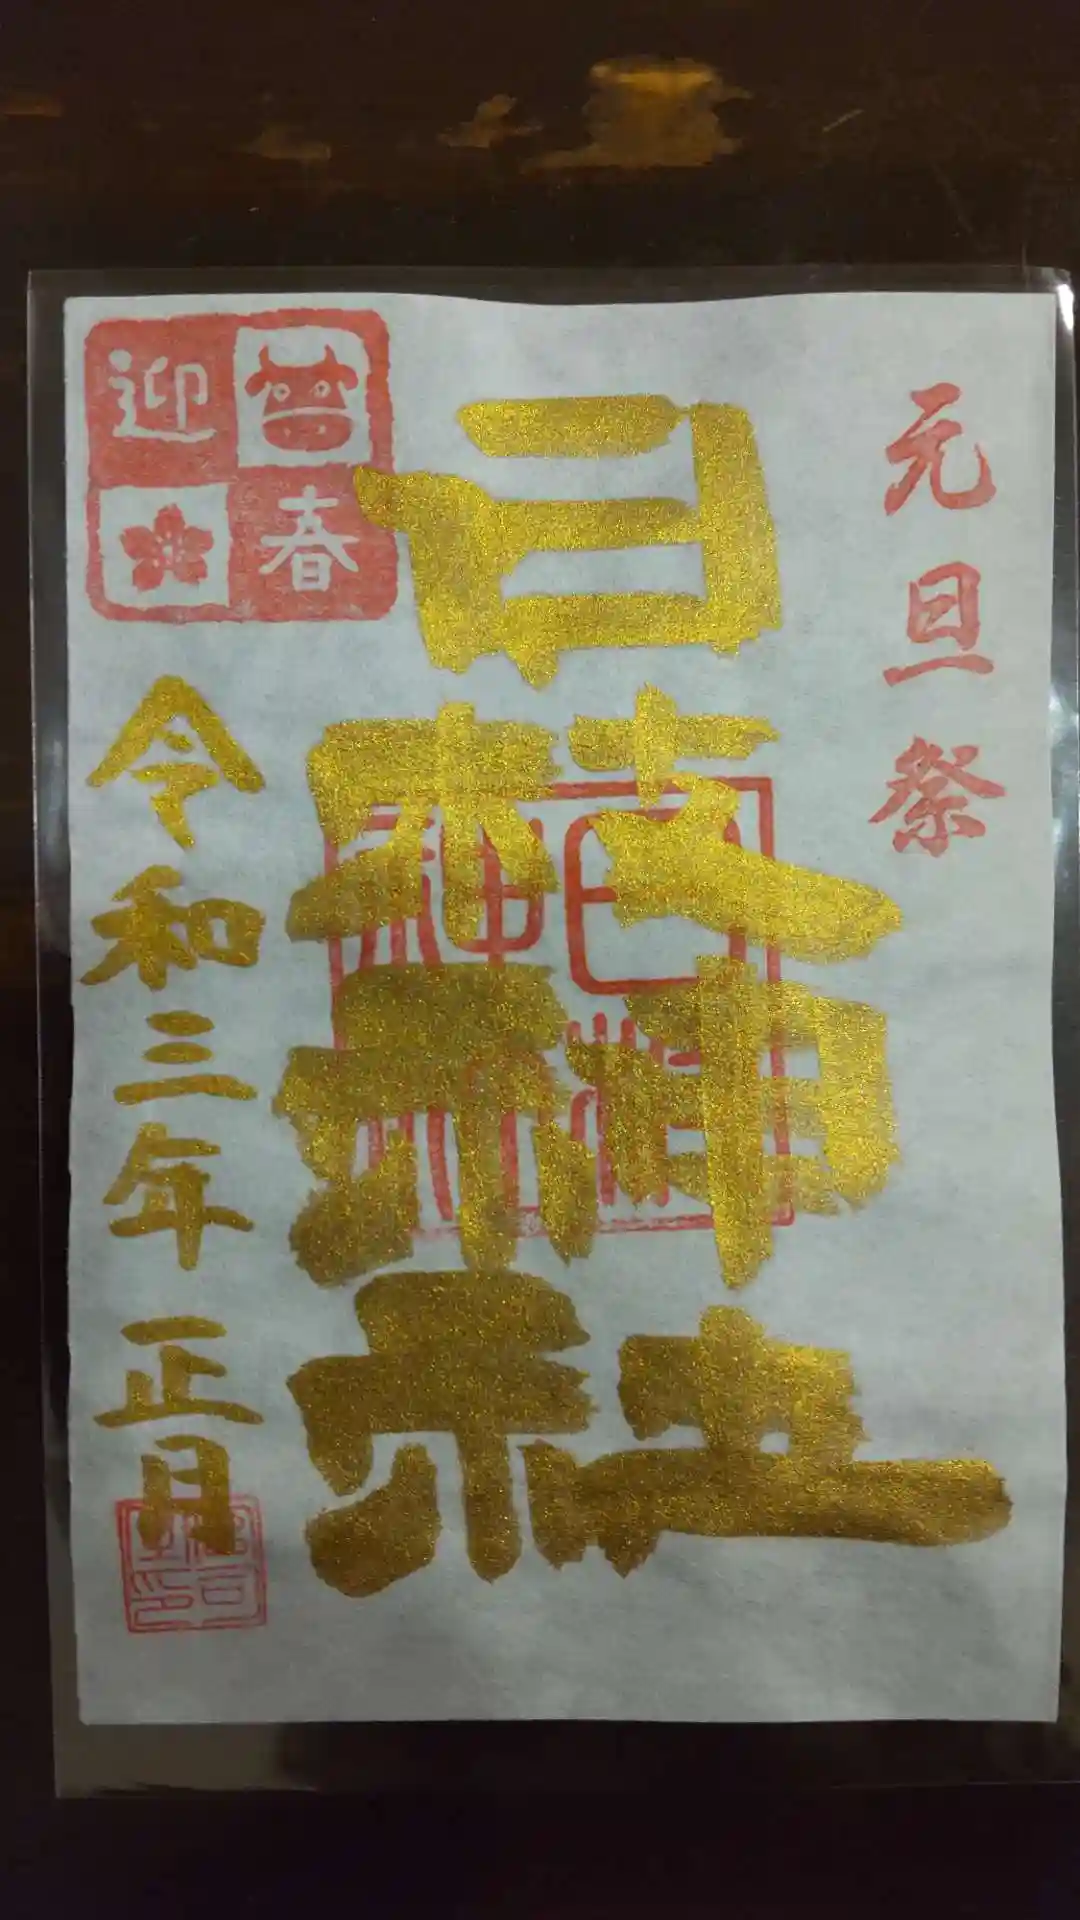 元旦祭
日枝神社
迎春
令和三年 正月